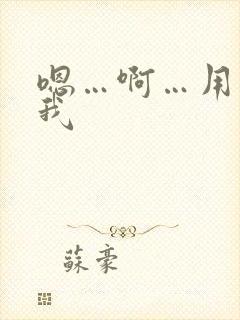 嗯…啊…用
我
蘇豪